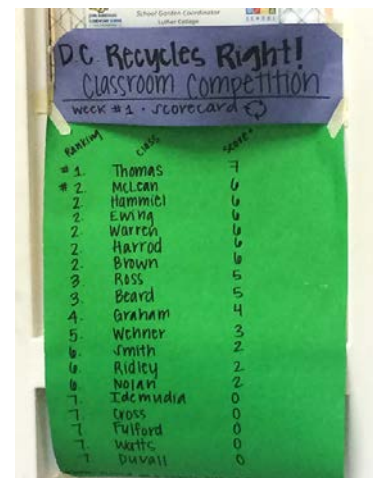 School Garden Coordinator
SCHOOL
D.C. Recycles Right!
Classroom Competition
week #1 · scorecard
Ranking Class Score
#1. Thomas 7
#2. McLean 6
2. Hammiel 6
2. Ewing 6
2. Warren 6
2. Harrod 6
2. Brown 6
3. Ross 5
3. Beard 5
4. Graham 4
5. Wehner 3
6. Smith 2
6. Ridley 2
6. Nolan 2
7. Idemudia 0
7. Cross 0
7. Fulford 0
7. Watts 0
7. Duvall 0